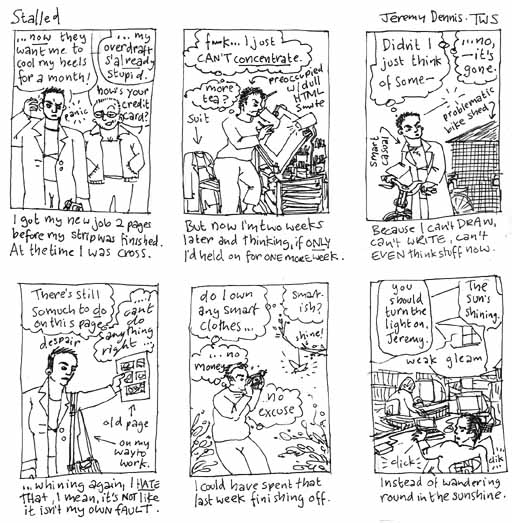 Stalled
Jeremy Dennis. TWS
...now they
want me to
cool my heels
for a month!
...my
overdraft
's already
stupid.
how's your
credit
card?
panic
I got my new job 2 pages
before my strip was finished.
At the time I was cross.
f**k... I just
CAN'T concentrate.
more
tea?
preoccupied
w/dull
HTML
Suit
But now I'm two weeks
later and thinking, if ONLY
I'd held on for ONE MORE week.
Didn't I
just think
of some—
...no,
—it's
gone.
smart
casual
problematic
bike shed
Because I can't DRAW,
can't WRITE, can't
EVEN think stuff now.
There's still
so much to do
on this page
...I
can't do
anything
right...
despair
old page
on my
way to
work.
...whining again, I HATE
THAT, I mean, it's NOT like
it isn't my own FAULT.
do I own
any smart
clothes...
Smart-
ish?
shine!
...no
money
no
excuse
I could have spent that
last week finishing off.
you
should
turn the
light on,
Jeremy.
The
Sun's
Shining.
weak gleam
click
clik
Instead of wandering
round in the sunshine.